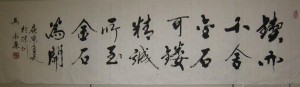 鍥而
不舍
金石
可鏤
精誠
所至
金石
為開